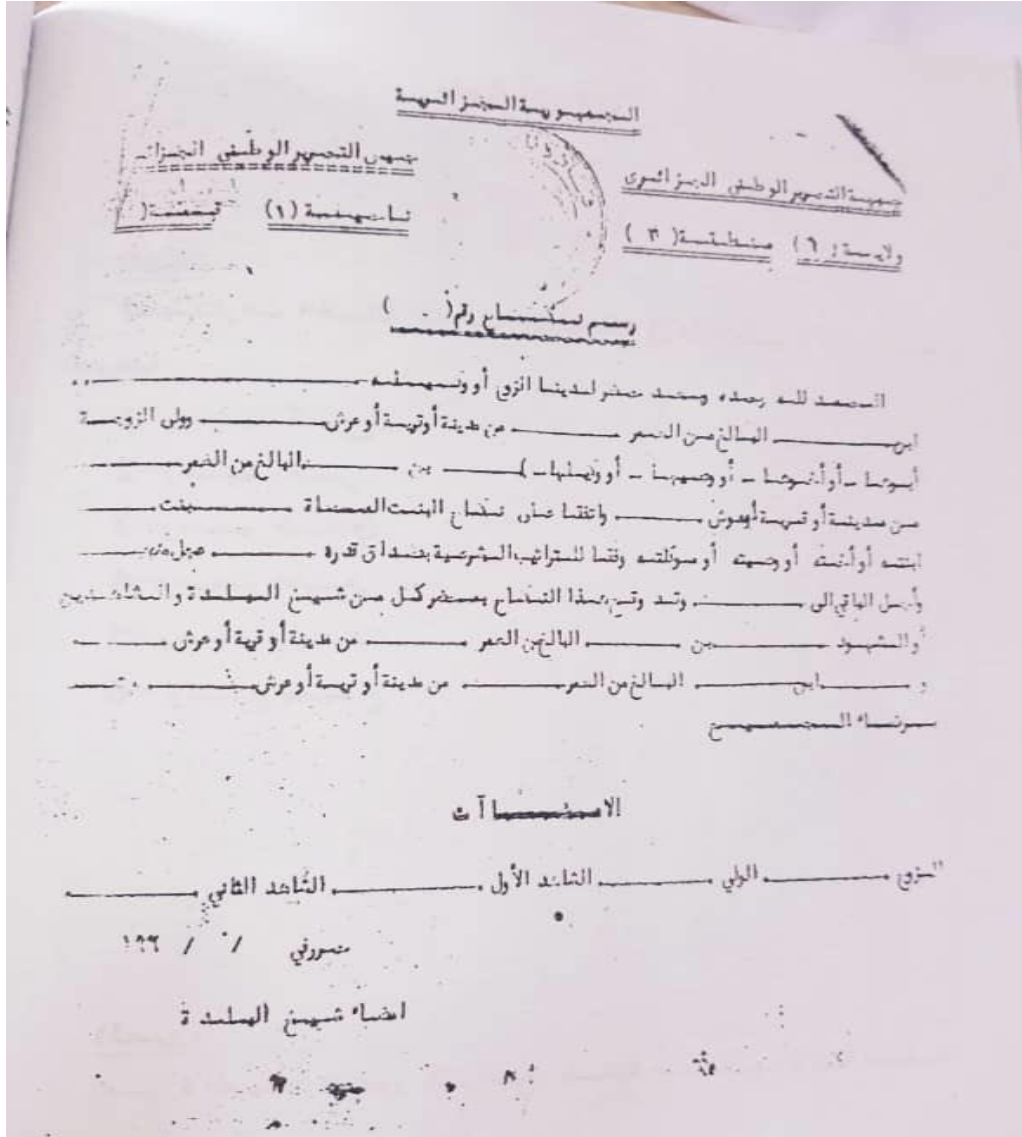 الجمهورية الجزائرية
جبهة التحرير الوطني الجزائري
جبهة التحرير الوطني الجزائري
ولاية ( ٦ ) منطقة ( ٣ )
ناحية (١) قسمة (
رسم نكاح رقم ( )
الحمد لله وحده وبعد حضر لدينا الزوج أو وكيله
ابن البالغ من العمر من مدينة أو قرية أو عرش وولي الزوجة
أبوها - أو أخوها - أو وصيها - أو وكيلها - ) بن البالغ من العمر
من مدينة أو قرية أو عرش واتفقا على نكاح البنت المسماة بنت
ابنته أو أخته أو وصيته أو موكلته وفقا للمراتب الشرعية بصداق قدره عجل منه
وأجل الباقي الى وقد وقع هذا النكاح بمحضر كل من شيخ البلدة والشاهدين
والشهود بن البالغ من العمر من مدينة أو قرية أو عرش
و ابن البالغ من العمر من مدينة أو قرية أو عرش
برضاء الجميع
الامضاآت
الزوج الولي الشاهد الأول الشاهد الثاني
حرر في / / ١٩٦
امضاء شيخ البلدة